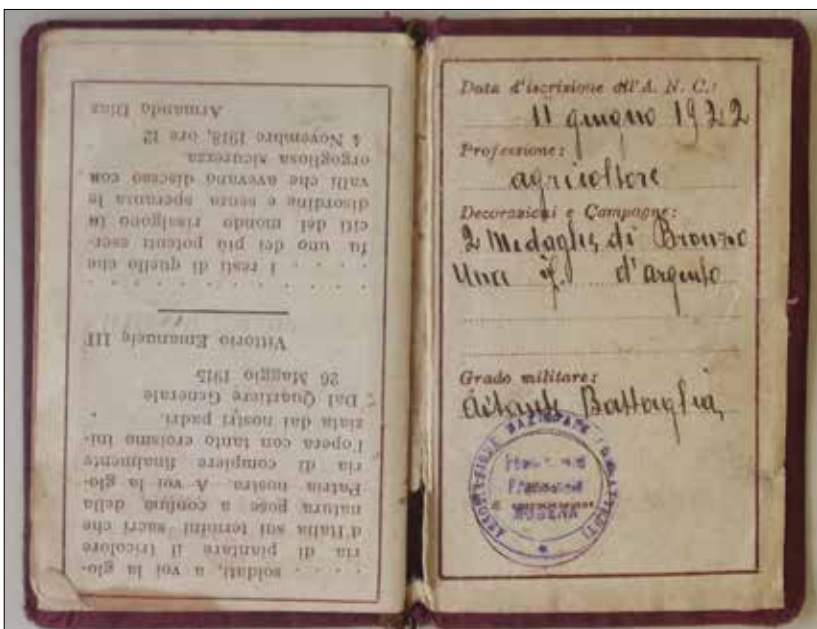 . . . . soldati, a voi la glo-
ria di piantare il tricolore
d'Italia sui termini sacri che
natura pose a confine della
Patria nostra. A voi la glo-
ria di compiere finalmente
l'opera con tanto eroismo ini-
ziata dai nostri padri.
Dal Quartiere Generale
26 Maggio 1915
Vittorio Emanuele III
. . . . . . . . . . . . .
. . . . . i resti di quello che
fu uno dei più potenti eser-
citi del mondo risalgono in
disordine e senza speranza le
valli che avevano disceso con
orgogliosa sicurezza.
4 Novembre 1918, ore 12
Armando Diaz
Data d'iscrizione all'A. N. C.:
11 giugno 1922
Professione:
agricoltore
Decorazioni e Campagne:
2 Medaglie di Bronzo
Una id. d'argento
Grado militare:
Battaglia
ASSOCIAZIONE NAZIONALE COMBATTENTI
MODENA